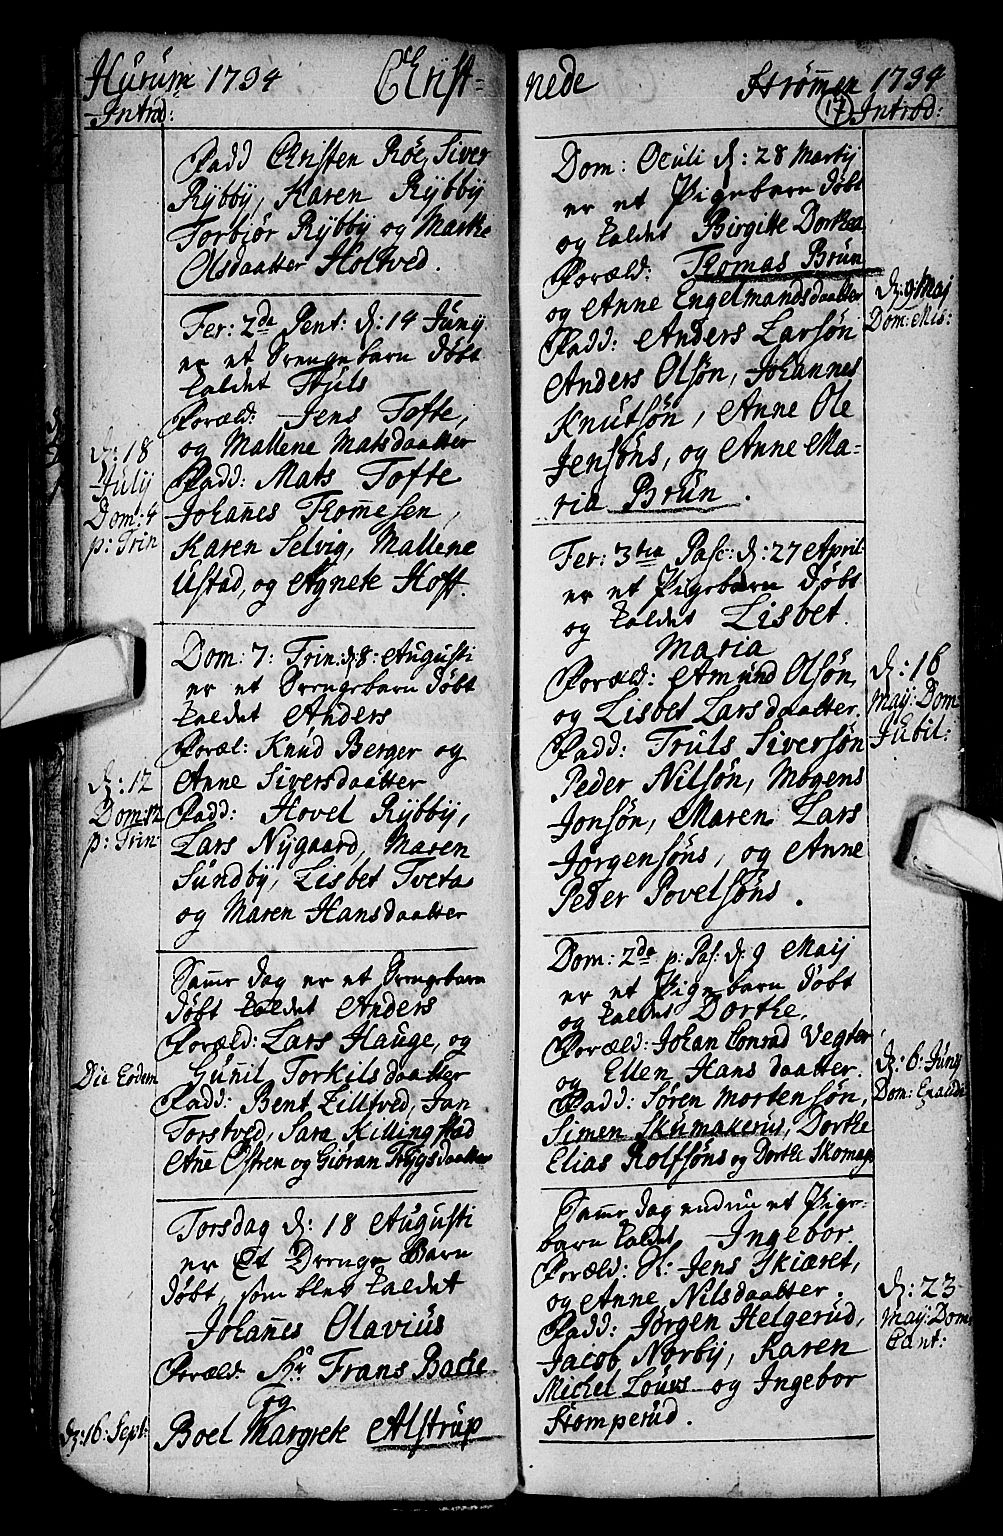 Hurum 1734 Christ-
Introd:
Fadd Christen Röe, Siver
Rÿbbÿ, Karen Rÿbbÿ
Torbiör Rÿbbÿ og Marthe
Olsdaatter Holtved.
Fer: 2da Pent: d: 14 Junÿ
er et Drengebarn döbt
kaldet Thjuls
Foræld: Jens Tofte,
og Mallene Matsdaatter
Fadd: Mats Tofte
Johañes Thom̃esen,
Karen Selvig, Mallene
Ustad, og Agnete Hoff.
d: 18
Julÿ
Dom: 4
p: Trin
Dom: 7: Trin: d: 8: Augusti
er et Drengebarn döbt
kaldet Anders
Foræl: Knud Berger og
Anne Siversdaatter
Fadd: Hovel Rÿbbÿ,
Lars Nÿgaard, Maren
Sundbÿ, Lisbet Tveta
og Maren Hansdaatter
d: 12
Dom: 12
p: Trin:
Sam̃e dag er et Drengebarn
döbt kaldet Anders
Foræld: Lars Hauge, og
Gunil Torkilsdaatter
Fadd: Bent Zilltved, Jan
Torstved, Sara Killingstad
Añe Ostren og Giöran Trÿgsdaatter
Die Eodem
Torsdag d: 18 Augusti
er Et Drenge Barn
döbt, som blev kaldet
Johañes Olavius
Foræld: Hr Frans Bache
og
Boel Margrete Alstrup
d: 16 Sept:
nede Ström̃en 1734
17 Introd:
Dom: Oculi d: 28 Martÿ
er et Pigebarn döbt
og kaldet Birgitte Dorthea
Foræld: Thomas Brün
og Anne Engelmandsdaatter
Fadd: Anders Larsön
Anders Olsön, Johannes
Knutsön, Anne Ole
Jensöns, og Anne Ma-
ria Brün.
d: 9 Maj
Dom: Mis:
Fer: 3tia Pasc: d: 27 April
er et Pigebarn döbt
og kaldet Lisbet
Maria
Foræld: Amund Olsön,
og Lisbet Larsdaatter.
Fadd: Truls Siversön
Peder Nilsön, Mogens
Jonsön, Maren Lars
Jörgensöns, og Anne
Peder Povelsöns.
d: 16
Maÿ: Dom
Jubil:
Dom: 2da p: Pas: d: 9 Maij
er et Pigebarn döbt
og kaldet Dorthe,
Foræld: Johan Conrad Vegter
og Ellen Hansdaatter.
Fadd: Sören Mortensön,
Simen Skumakerus, Dorthe
Elias Rolfsöns og Dorthe Skomag:
d: 6: Junÿ
Dom: Exaudi
Sam̃e dag endnu et Pige-
barn kaldet Ingebor.
Foræld: Jens Skiæret,
og Anne Nilsdaatter.
Fadd: Jörgen Helgerud,
Jacob Norbÿ, Karen
Michel Louvs og Ingebor
Stomperud.
d: 23
Maÿ: Dom:
Cant: